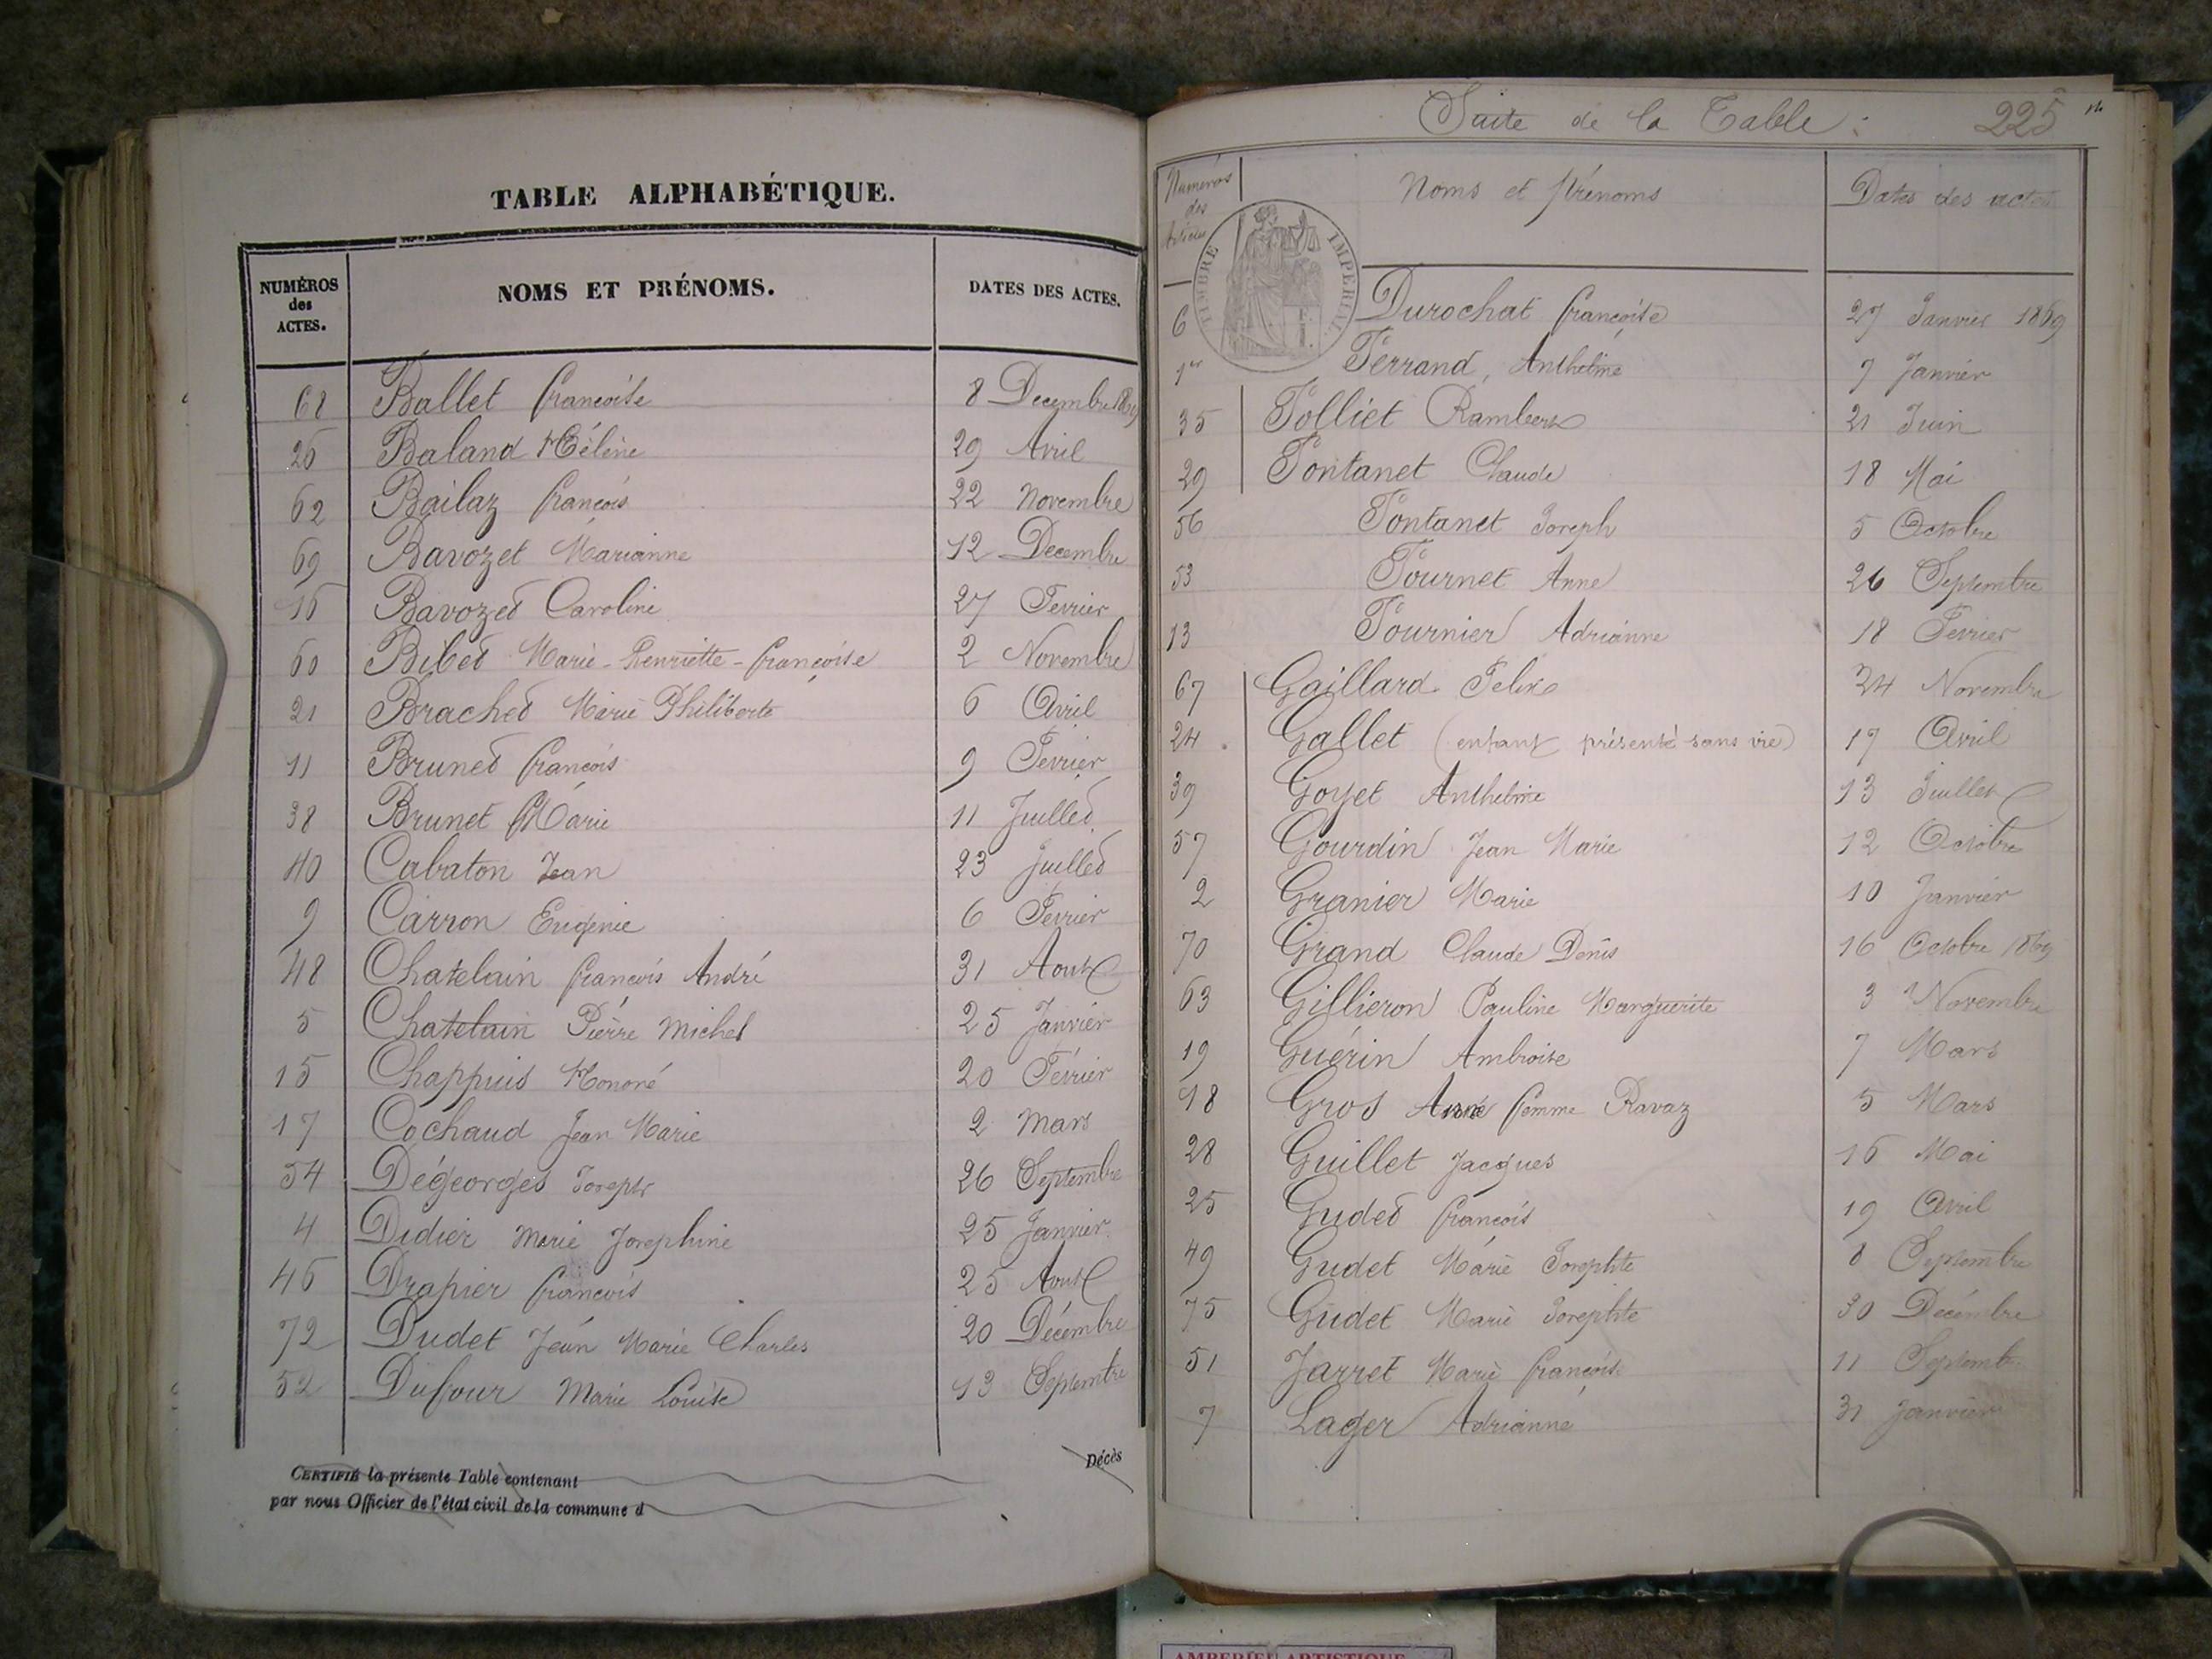 TABLE ALPHABÉTIQUE.
NUMÉROS des ACTES. NOMS ET PRÉNOMS. DATES DES ACTES.
68 Ballet françoise 8 Decembre 1869
26 Baland Hélène 29 Avril
62 Bailaz françois 22 Novembre
69 Bavozet Marianne 12 Decembre
16 Bavozet Caroline 27 Fevrier
60 Bibet Marie-Henriette-françoise 2 Novembre
21 Brachet Marie Philiberte 6 Avril
11 Brunet françois 9 Fevrier
38 Brunet Marie 11 Juillet
40 Cabaton Jean 23 Juillet
9 Carron Eugénie 6 Fevrier
48 Chatelain françois André 31 Aout
5 Chatelain Pierre Michel 25 Janvier
15 Chappuis Honoré 20 Février
17 Cochaud Jean Marie 2 Mars
54 Dégeorges Joseph 26 Septembre
4 Didier Marie Josephine 25 Janvier
46 Drapier françois 25 Aout
72 Dudet Jean Marie Charles 20 Décembre
52 Dufour Marie Louise 13 Septembre
Décès
CERTIFIÉ la présente Table contenant
par nous Officier de l'état civil de la commune d
Suite de la Table : 225
Numéros des Articles Noms et Prénoms Dates des actes
TIMBRE IMPERIAL
6 Durochat françoise 27 Janvier 1869
1er Ferrand, Anthelme 7 Janvier
35 Folliet Rambert 21 Juin
29 Fontanet Claude 18 Mai
56 Fontanet Joseph 5 Octobre
53 Fournet Anne 26 Septembre
13 Fournier Adrianne 18 Fevrier
67 Gaillard Felix 24 Novembre
24 Gallet (enfant présenté sans vie) 17 Avril
39 Goyet Anthelme 13 Juillet
57 Gourdin Jean Marie 12 Octobre
2 Granier Marie 10 Janvier
70 Grand Claude Denis 16 Octobre 1869
63 Gillieron Pauline Marguerite 3 Novembre
19 Guérin Ambroise 7 Mars
18 Gros Anne femme Ravaz 5 Mars
28 Guillet Jacques 16 Mai
25 Gudet françois 19 Avril
49 Gudet Marie Josephte 8 Septembre
75 Gudet Marie Josephte 30 Decémbre
51 Jarret Marie françois 11 Septemb.
7 Lager Adrianne 31 Janvier
AMBERIEU ARTISTIQUE